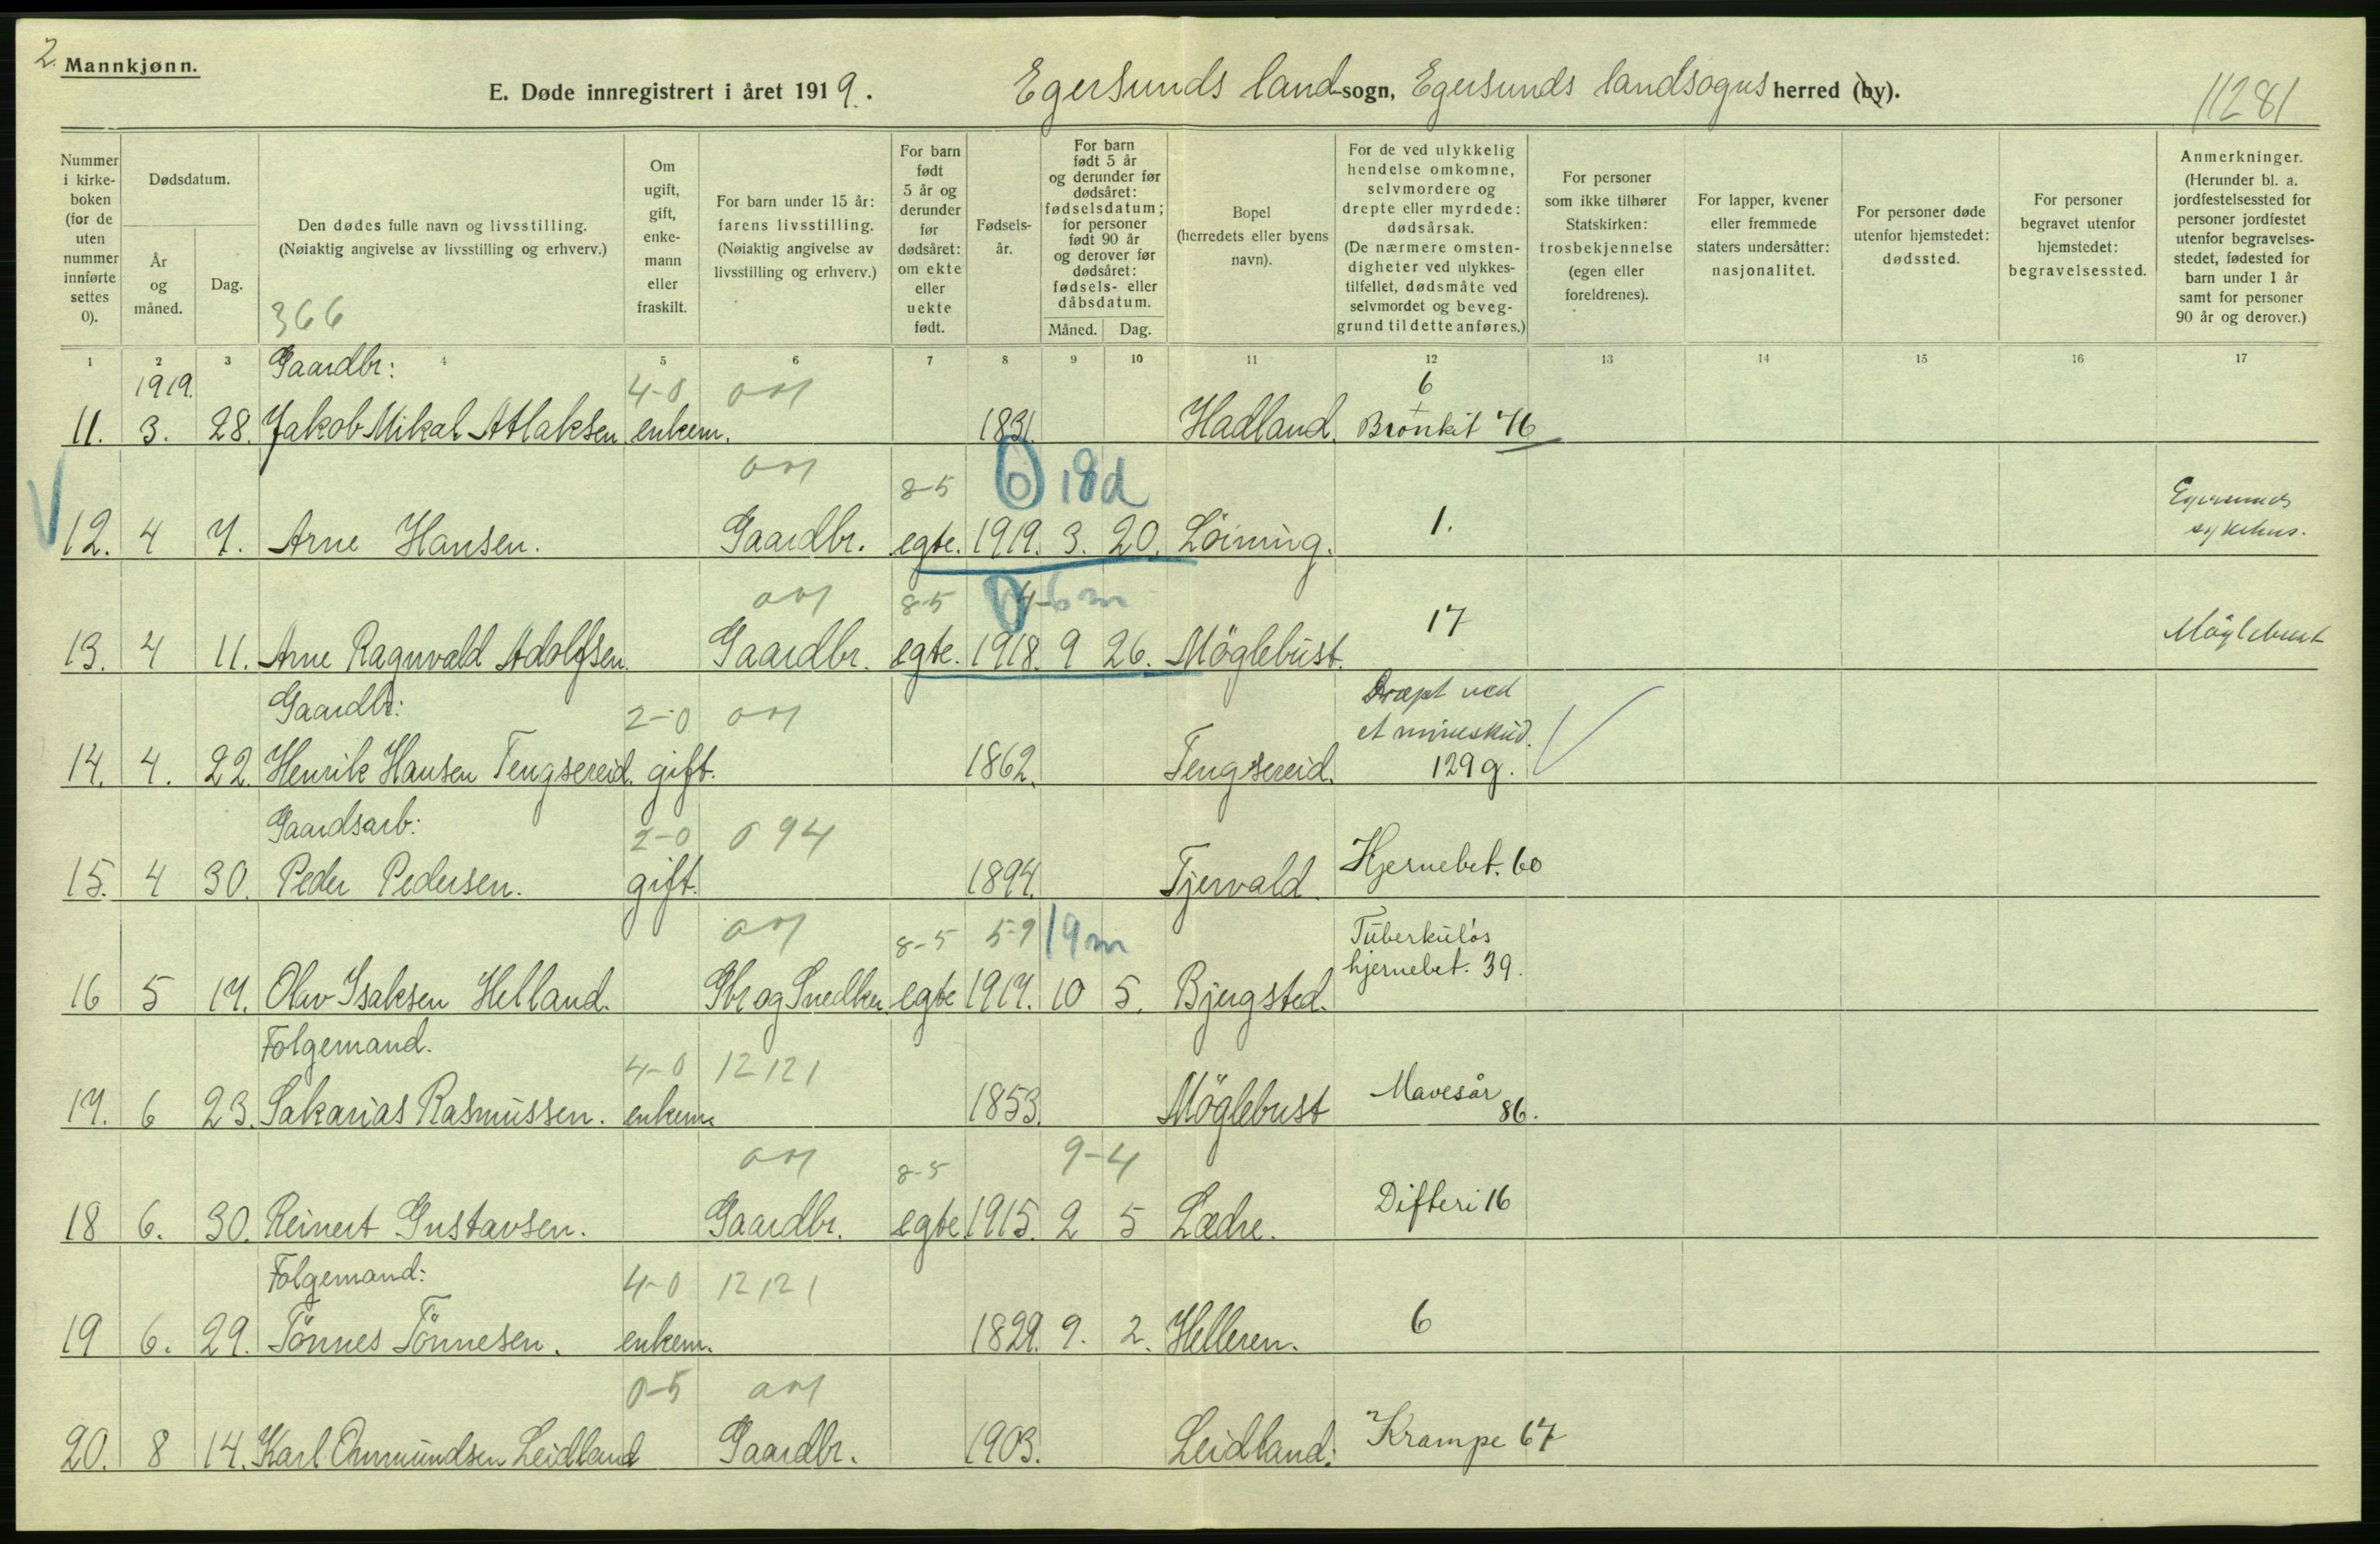 2.
Mannkjønn.
E. Døde innregistrert i året 1919. Egersunds landsogn, Egersunds landsogns herred (by).
11281
Nummer i kirkeboken (for de uten nummer innførte settes 0).
Dødsdatum.
År og måned.
Dag.
Den dødes fulle navn og livsstilling.
(Nøiaktig angivelse av livsstilling og erhverv.)
366
Om ugift, gift, enkemann eller fraskilt.
For barn under 15 år: farens livsstilling.
(Nøiaktig angivelse av livsstilling og erhverv.)
For barn født 5 år og derunder før dødsåret: om ekte eller uekte født.
Fødselsår.
For barn født 5 år og derunder før dødsåret: fødselsdatum; for personer født 90 år og derover før dødsåret: fødsels- eller dåbsdatum.
Måned. Dag.
Bopel (herredets eller byens navn).
For de ved ulykkelig hendelse omkomne, selvmordere og drepte eller myrdede: dødsårsak.
(De nærmere omstendigheter ved ulykkestilfellet, dødsmåte ved selvmordet og beveggrund til dette anføres.)
For personer som ikke tilhører Statskirken: trosbekjennelse (egen eller foreldrenes).
For lapper, kvener eller fremmede staters undersåtter: nasjonalitet.
For personer døde utenfor hjemstedet: dødssted.
For personer begravet utenfor hjemstedet: begravelsessted.
Anmerkninger.
(Herunder bl. a. jordfestelsessted for personer jordfestet utenfor begravelsesstedet, fødested for barn under 1 år samt for personer 90 år og derover.)
1 2 3 4 5 6 7 8 9 10 11 12 13 14 15 16 17
1919. Gaardbr: 4-0 6
11. 3. 28. Jakob Mikal Atlaksen enkem. 1831. Hadland. Bronkit 76
8-5 0 18d
12. 4 7. Arne Hansen. Gaardbr. egte. 1919. 3. 20. Löining. 1. Egersunds sykehus.
8-5 0 4-6 m
13. 4 11. Arne Ragnvald Adolfsen. Gaardbr. egte. 1918. 9 26. Möglebust. 17 Möglebust
Gaardbr: 2-0 Dræpt ved et mineskud.
14. 4. 22. Henrik Hansen Tengsereid. gift. 1862. Tengsereid. 129g.
Gaardsarb: 2-0 094
15. 4 30. Peder Pedersen. gift. 1894. Tjervald Hjernebet. 60
8-5 5-9 19m Tüberkulös
16 5 17. Olav Isaksen Helland. Gbr og Snedker. egte 1917. 10 5. Bjugsted. hjernebet. 39.
Folgemand. 4-0 12121
17. 6 23. Sakarias Rasmussen. enkem. 1853. Möglebust Mavesår 86.
8-5 9-4
18 6. 30. Reinert Gustavsen. Gaardbr. egte. 1915. 2 5 Lædre. Difteri 16
Folgemand: 4-0 12121
19 6. 29. Tönnes Tönnesen. enkem. 1829. 9. 2. Helleren. 6
0-5
20. 8 14. Karl Ommundsen Leidland Gaardbr. 1903. Leidland: Krampe 67